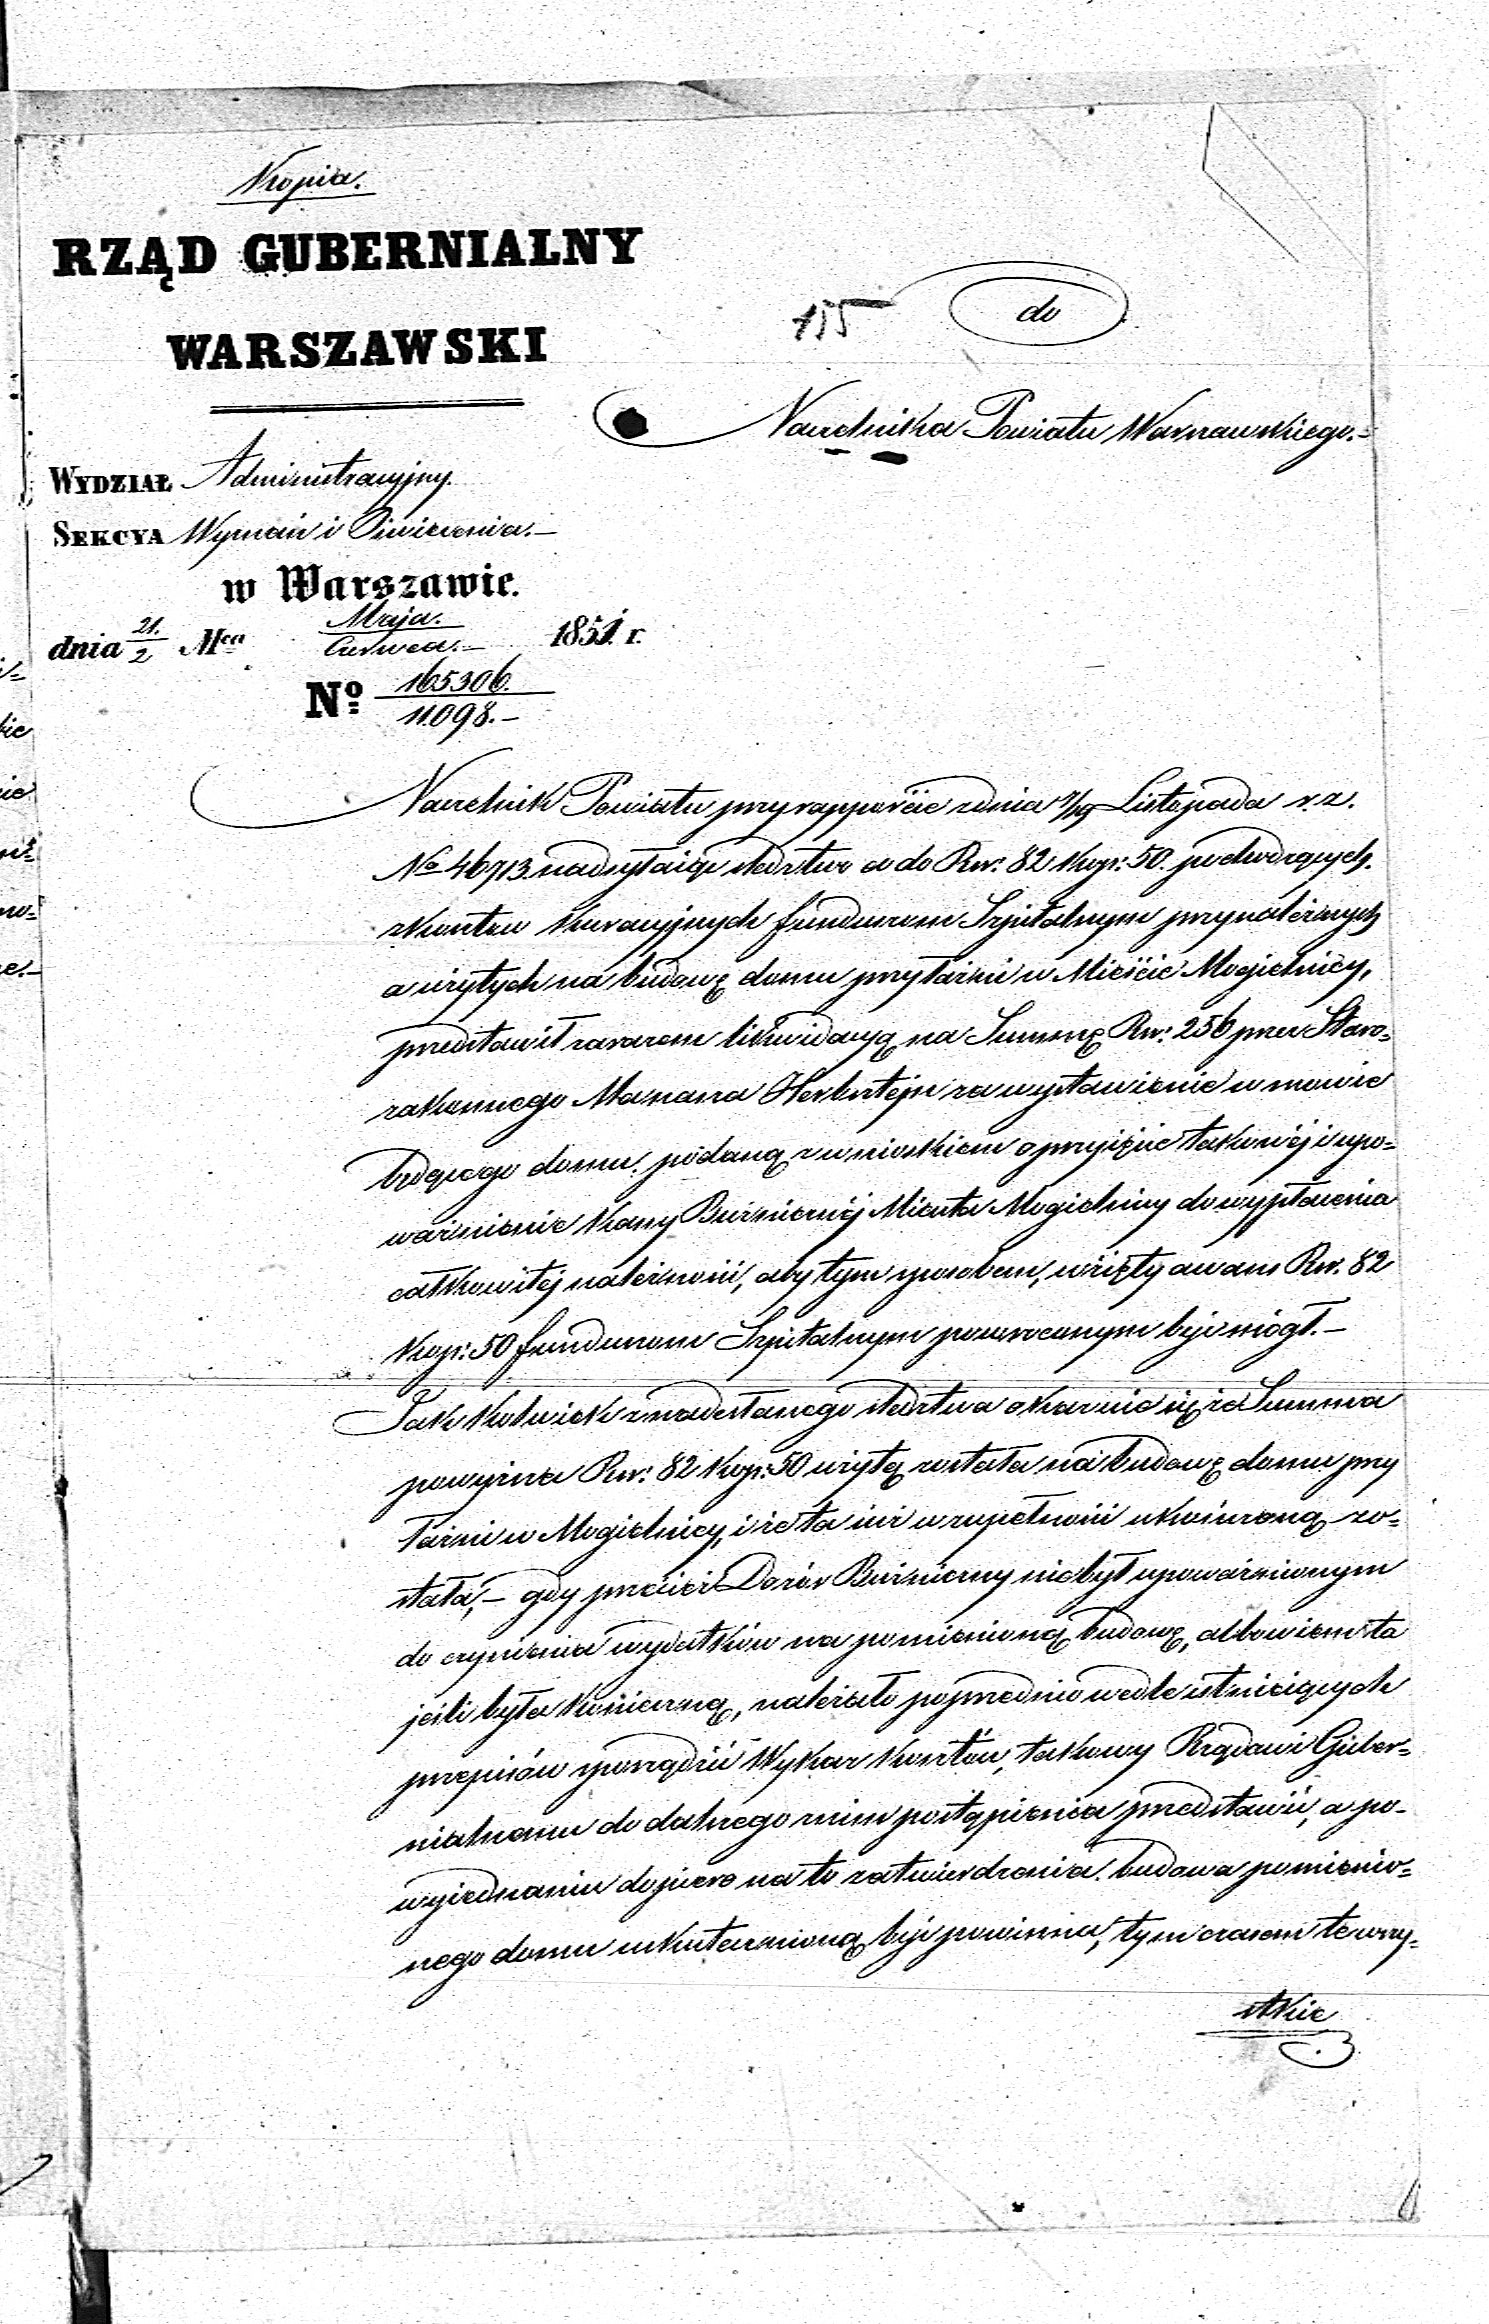 Kopia.
RZĄD GUBERNIALNY
WARSZAWSKI
155
do
Naczelnika Powiatu Warszawskiego.=
WYDZIAŁ Administracyjny.
SEKCYA Wyznań i Oświecenia.—
w Warszawie.
dnia 21./2 Mca Maja./Czerwca.— 1851 r.
No 165306./11098.—
Naczelnik Powiatu przy rapporcie z dnia 7/19 Listopada r. z.
No 46713. nadsyłaiąc śledztwo co do Rsr: 82 kop: 50. pochodzących
z kosztów kuracyjnych funduszom Szpitalnym przynależnych
a użytych na budowę domu przy łaźni w Mieście Mogielnicy,
przedstawił zarazem likwidacyą na Summę Rsr: 256 przez Staro=
zakonnego Herbsztejn za wystawienie w mowie
będącego domu podaną z wnioskiem o przyięcie takowéj i upo=
ważnienie Kassy Bużniczéj Miasta Mogielnicy do wypłacenia
całkowitéj należności, aby tym sposobem, wzięty awans Rsr. 82
kop: 50 funduszom Szpitalnym powróconym być mógł.—
Jak kolwiek z nadesłanego śledztwa okazuie się że Summa
powyższa Rsr: 82 kop: 50 użytą została na budowę domu przy
łaźni w Mogielnicy, i że ta iuż w zupełności ukończoną zo=
stała,— gdy przecież Dozór Bużniczny nie był upoważnionym
do czynienia wydatków na pomienioną budowę, albowiem ta
jeśli była konieczną, należało poprzednio wedle istnieiących
przepisów sporządzić Wykaz kosztów, takowy Rządowi Guber=
nialnemu do dalszego z nim postąpienia przedstawić, a po
wyjednaniu dopiero na to zatwierdzenia budowa pomienio=
nego domu uskutecznioną być powinna, tym czasem te wszy=
stkie